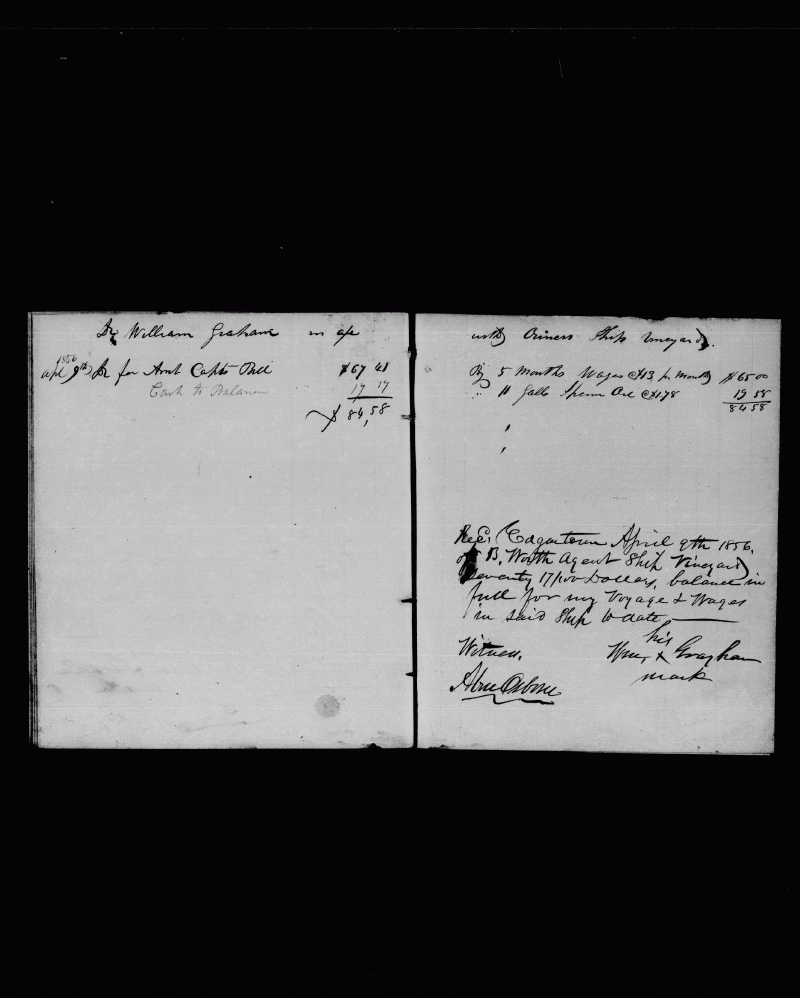 Dr William Graham in a/c
1856
apl 9th Dr for Amt Capts Bill $67 41
Cash to Balance 17 17
$ 84,58
with Owners Ship Vineyard.
By 5 months Wages @$13 pr month $65 00
" 11 Galls Sperm Oil @ $1,78 19 58
84 58
Recd, Edgartown April 9th 1856,
of B. Worth Agent Ship Vineyard
Seventy 17/100 Dollars, balance in
full for my Voyage & Wages
in said Ship to date
his
Witness, Wm, x Graham
mark
Abm Osborn